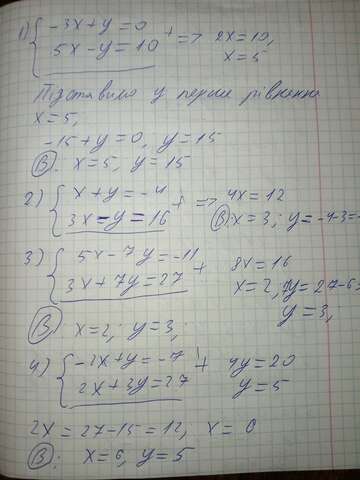 1) { -3x+y=0 + => 2x=10,
5x-y=10 x=5
Підставимо у перше рівняння
x=5,
-15+y=0, y=15
В: x=5, y=15
2) { x+y=-4 + => 4x=12
3x-y=16 В: x=3; y=-4-3=-
3) { 5x-7y=-11 + 8x=16
3x+7y=27 x=2, 7y=27-6,
y=3,
В x=2; y=3;
4) { -2x+y=-7 + 4y=20
2x+3y=27 y=5
2x=27-15=12, x=6
В: x=6, y=5